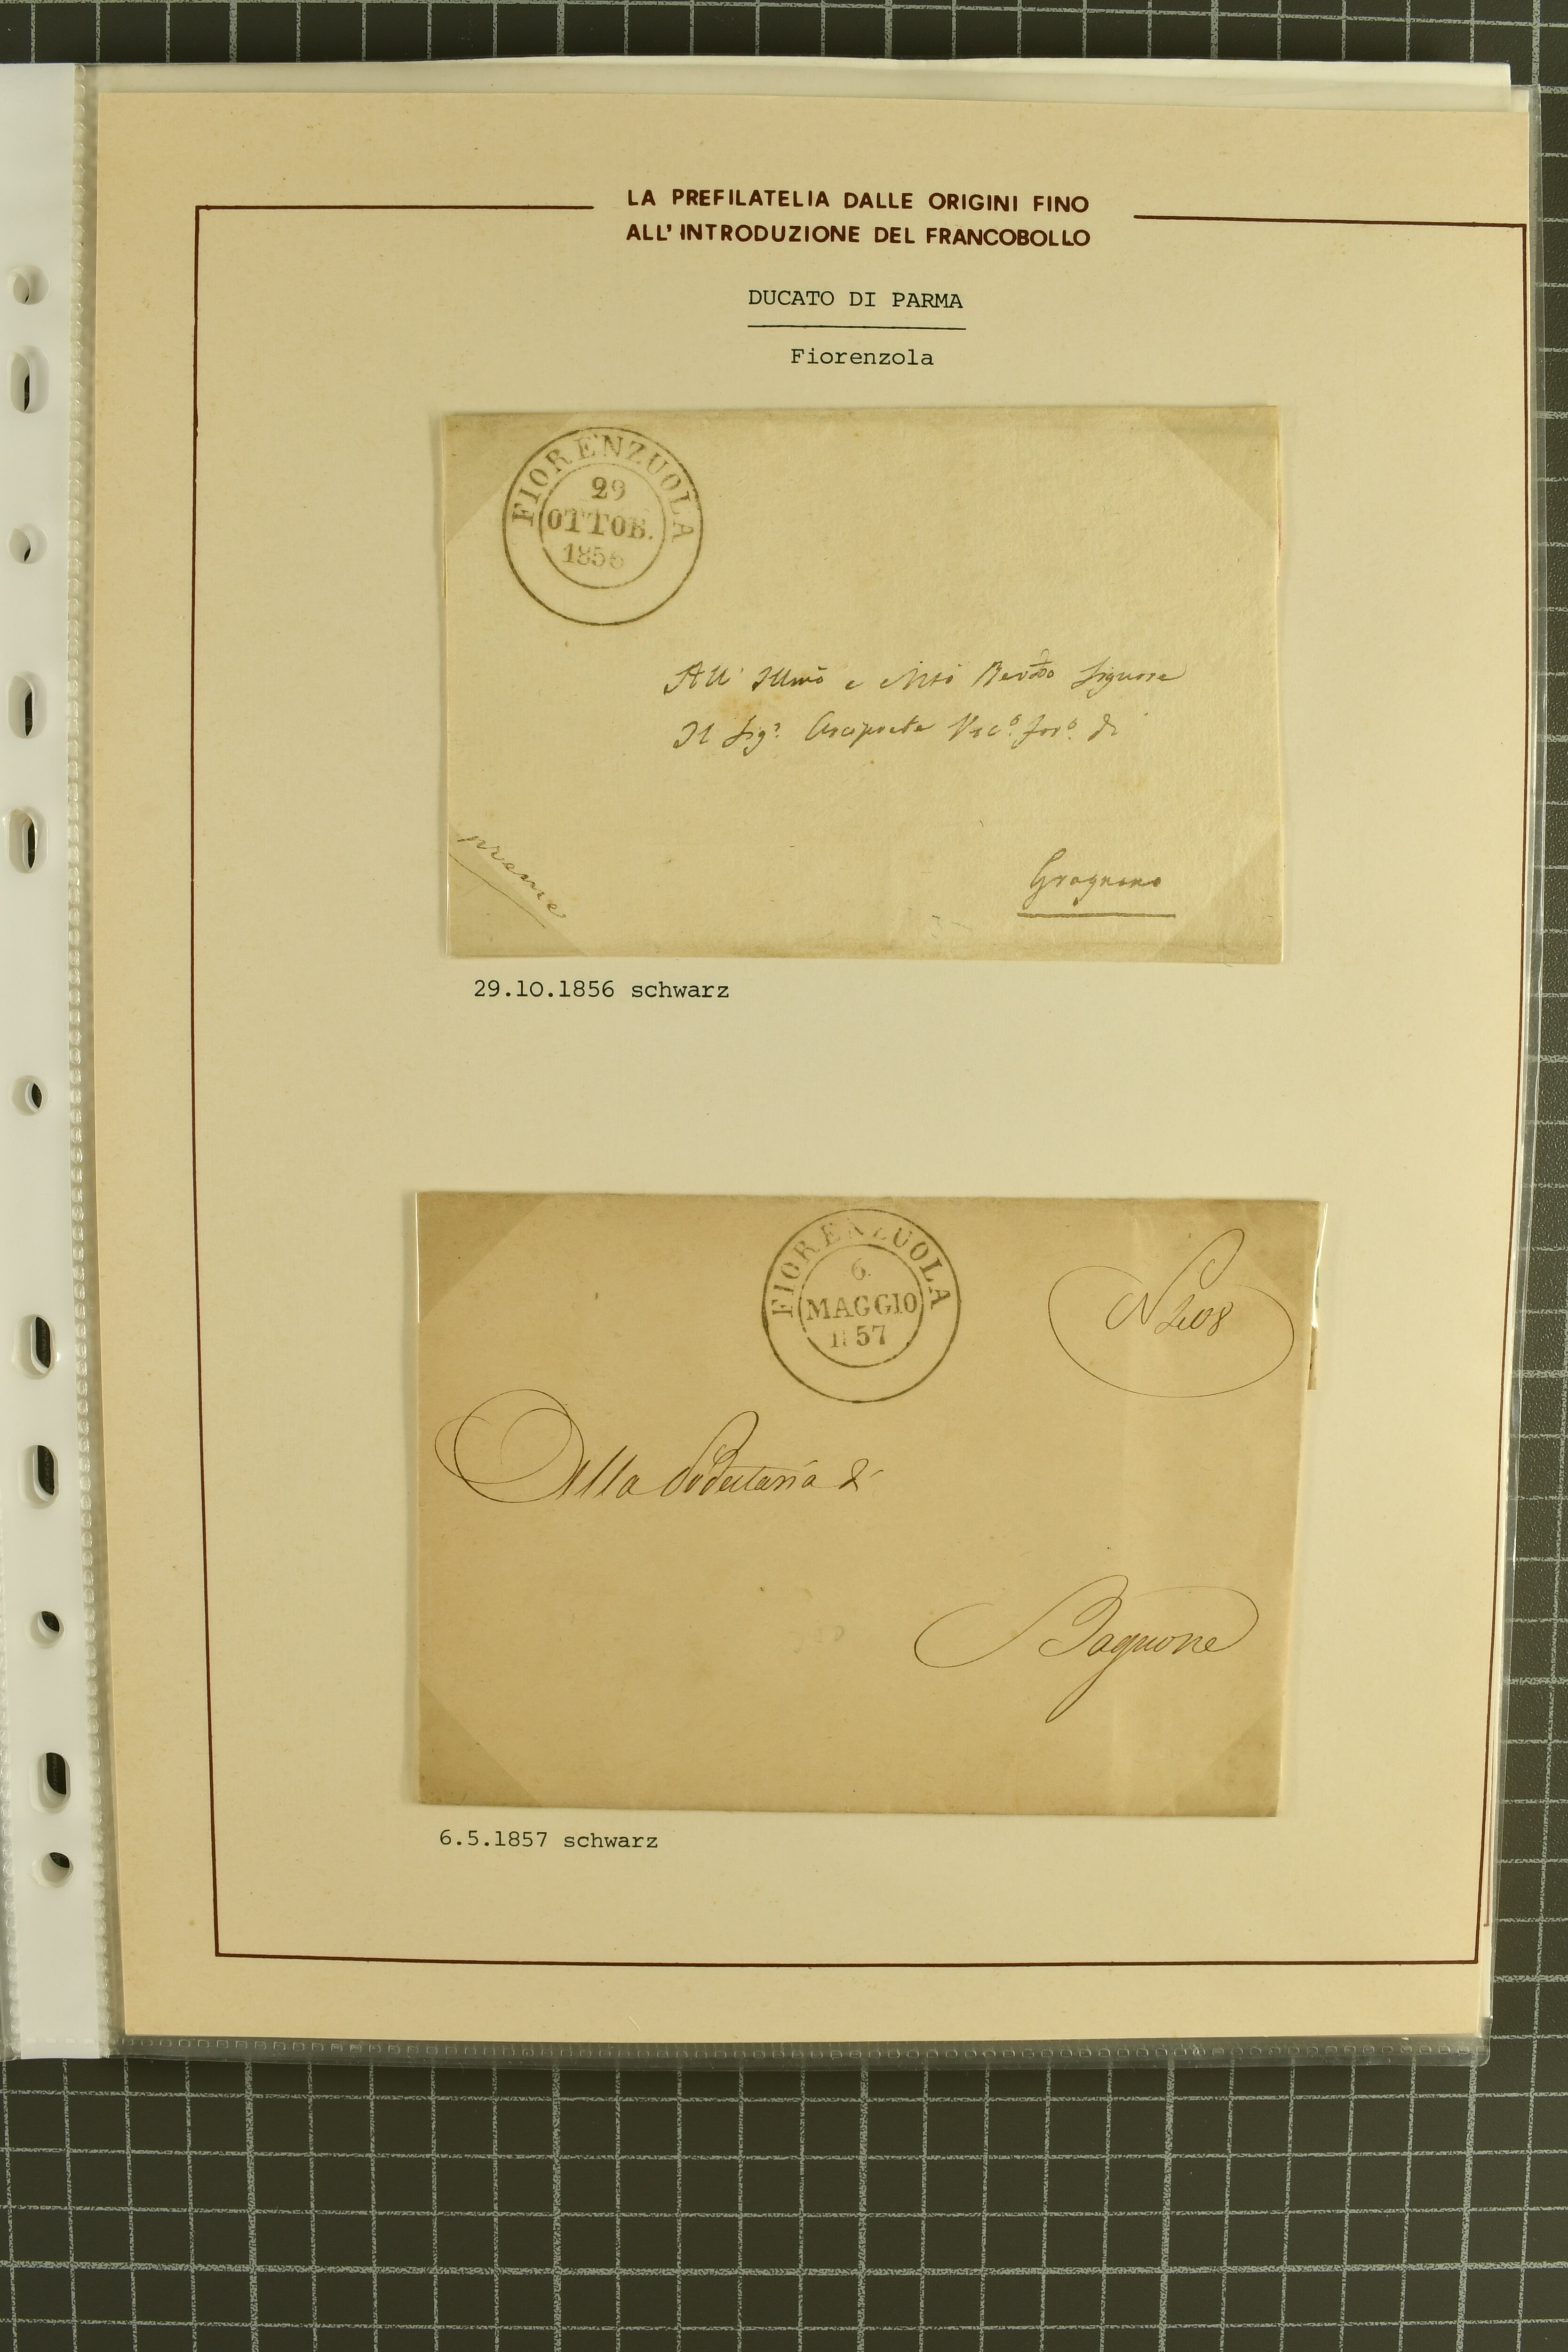 LA PREFILATELIA DALLE ORIGINI FINO
ALL' INTRODUZIONE DEL FRANCOBOLLO
DUCATO DI PARMA
Fiorenzola
FIORENZUOLA
29
OTTOB.
1856
All' Illmō e Signore
Il Sigr. Arciprete Vico. Foro. di
preme
Gragnano
29.10.1856 schwarz
FIORENZUOLA
6.
MAGGIO
1857
N 408
Alla Podesteria di
Bagnone
6.5.1857 schwarz